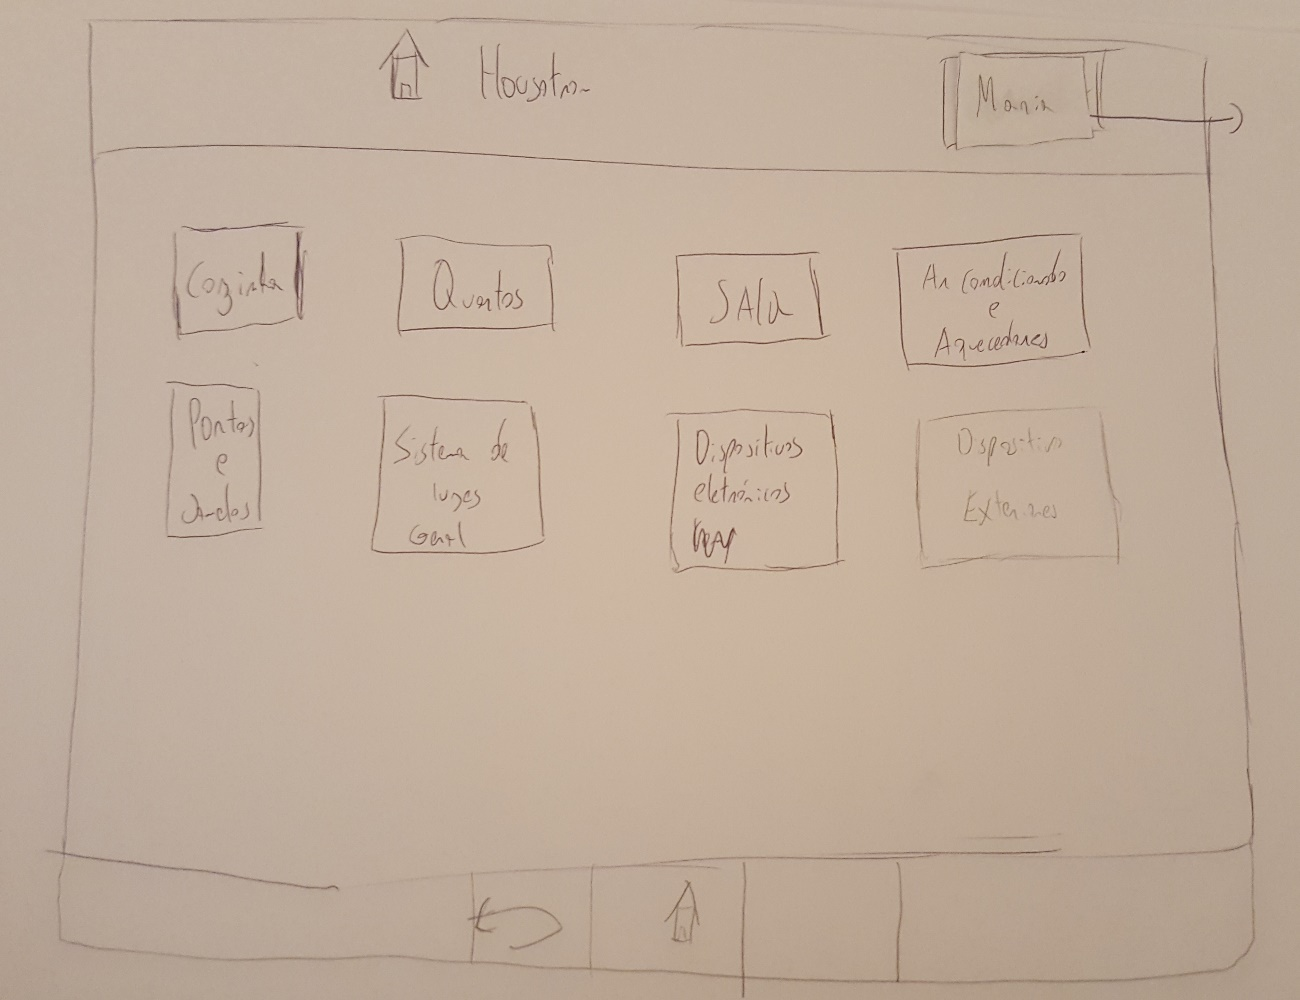 Maria
Cozinha
Quartos
SALA
Ar Condicionado
e
Aquecedores
Portas
e
Sistema de
luzes
Geral
Dispositivos
eletrónicos
Dispositivos
Exteriores